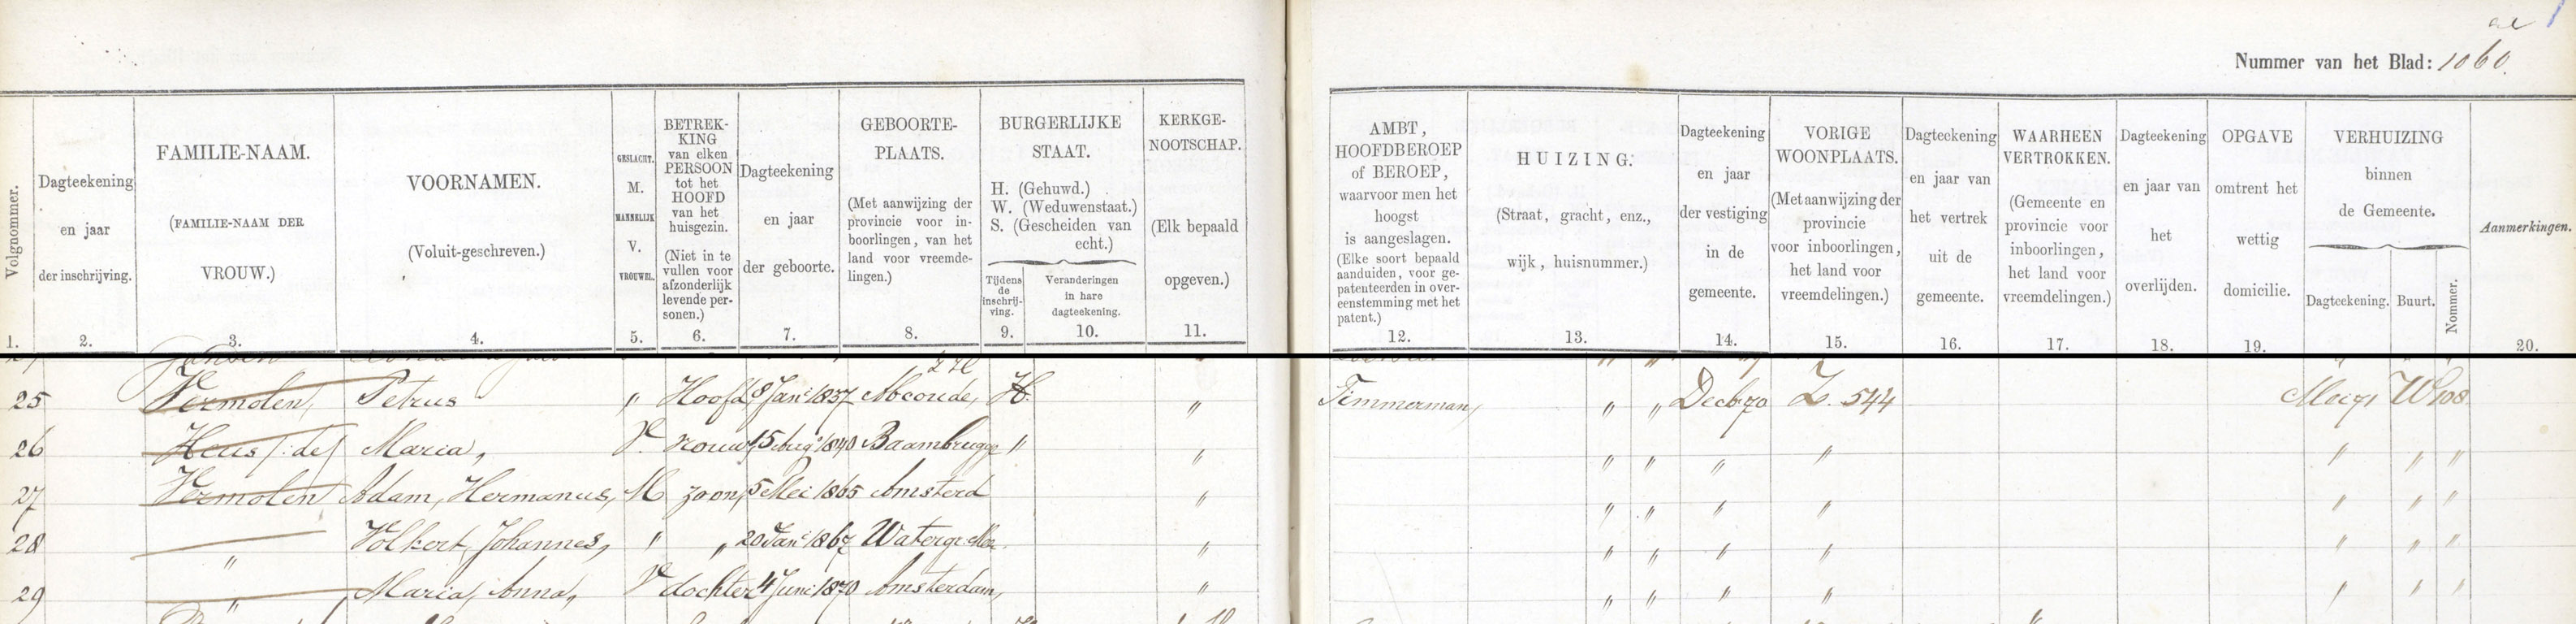 ae 1
Nummer van het Blad: 1060.
Volgnommer.
1.
Dagteekening
en jaar
der inschrijving.
2.
FAMILIE-NAAM.
(FAMILIE-NAAM DER
VROUW.)
3.
VOORNAMEN.
(Voluit-geschreven.)
4.
GESLACHT.
M.
MANNELIJK
V.
VROUWEL.
5.
BETREK-
KING
van elken
PERSOON
tot het
HOOFD
van het
huisgezin.
(Niet in te
vullen voor
afzonderlijk
levende per-
sonen.)
6.
Dagteekening
en jaar
der geboorte.
7.
GEBOORTE-
PLAATS.
(Met aanwijzing der
provincie voor in-
boorlingen, van het
land voor vreemde-
lingen.)
8.
BURGERLIJKE
STAAT.
H. (Gehuwd.)
W. (Weduwenstaat.)
S. (Gescheiden van
echt.)
Tijdens
de
inschrij-
ving.
9.
Veranderingen
in hare
dagteekening.
10.
KERKGE-
NOOTSCHAP.
(Elk bepaald
opgeven.)
11.
AMBT,
HOOFDBEROEP
of BEROEP,
waarvoor men het
hoogst
is aangeslagen.
(Elke soort bepaald
aanduiden, voor ge-
patenteerden in over-
eenstemming met het
patent.)
12.
HUIZING.
(Straat, gracht, enz.,
wijk, huisnummer.)
13.
Dagteekening
en jaar
der vestiging
in de
gemeente.
14.
VORIGE
WOONPLAATS.
(Met aanwijzing der
provincie
voor inboorlingen,
het land voor
vreemdelingen.)
15.
Dagteekening
en jaar van
het vertrek
uit de
gemeente.
16.
WAARHEEN
VERTROKKEN.
(Gemeente en
provincie voor
inboorlingen,
het land voor
vreemdelingen.)
17.
Dagteekening
en jaar van
het
overlijden.
18.
OPGAVE
omtrent het
wettig
domicilie.
19.
VERHUIZING
binnen
de Gemeente.
Dagteekening.
Buurt.
Nommer.
Aanmerkingen.
20.
25 Vermolen, Petrus " Hoofd 8 Jan: 1837 Abcoude, H. " Timmerman, " " Decb 70 Z. 544 Mei 71 W 108
26 Heus /:de/ Maria, V. vrouw, 15 Aug: 1840 Baambrugge " " " " " " " " "
27 Vermolen Adam, Hermanus, M zoon, 5 Mei 1865 Amsterd " " " " " " " "
28 " Volkert, Johannes, " " 20 Jan: 1867 Watergr. Mee. " " " " " " " "
29 " Maria, Anna, V dochter 4 Juni 1870 Amsterdam, " " " " " " " "